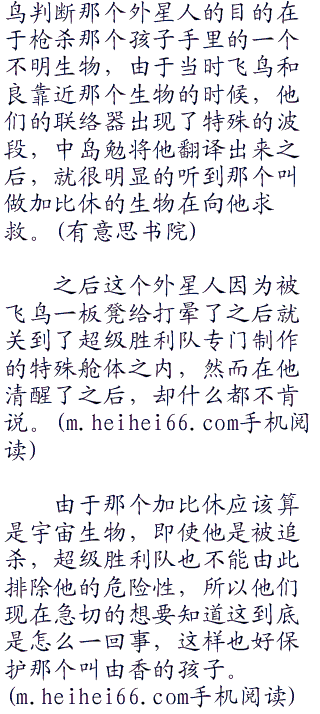 鸟判断那个外星人的目的在
于枪杀那个孩子手里的一个
不明生物，由于当时飞鸟和
良靠近那个生物的时候，他
们的联络器出现了特殊的波
段，中岛勉将他翻译出来之
后，就很明显的听到那个叫
做加比休的生物在向他求
救。(有意思书院)
之后这个外星人因为被
飞鸟一板凳给打晕了之后就
关到了超级胜利队专门制作
的特殊舱体之内，然而在他
清醒了之后，却什么都不肯
说。(m.heihei66.com手机阅
读)
由于那个加比休应该算
是宇宙生物，即使他是被追
杀，超级胜利队也不能由此
排除他的危险性，所以他们
现在急切的想要知道这到底
是怎么一回事，这样也好保
护那个叫由香的孩子。
(m.heihei66.com手机阅读)